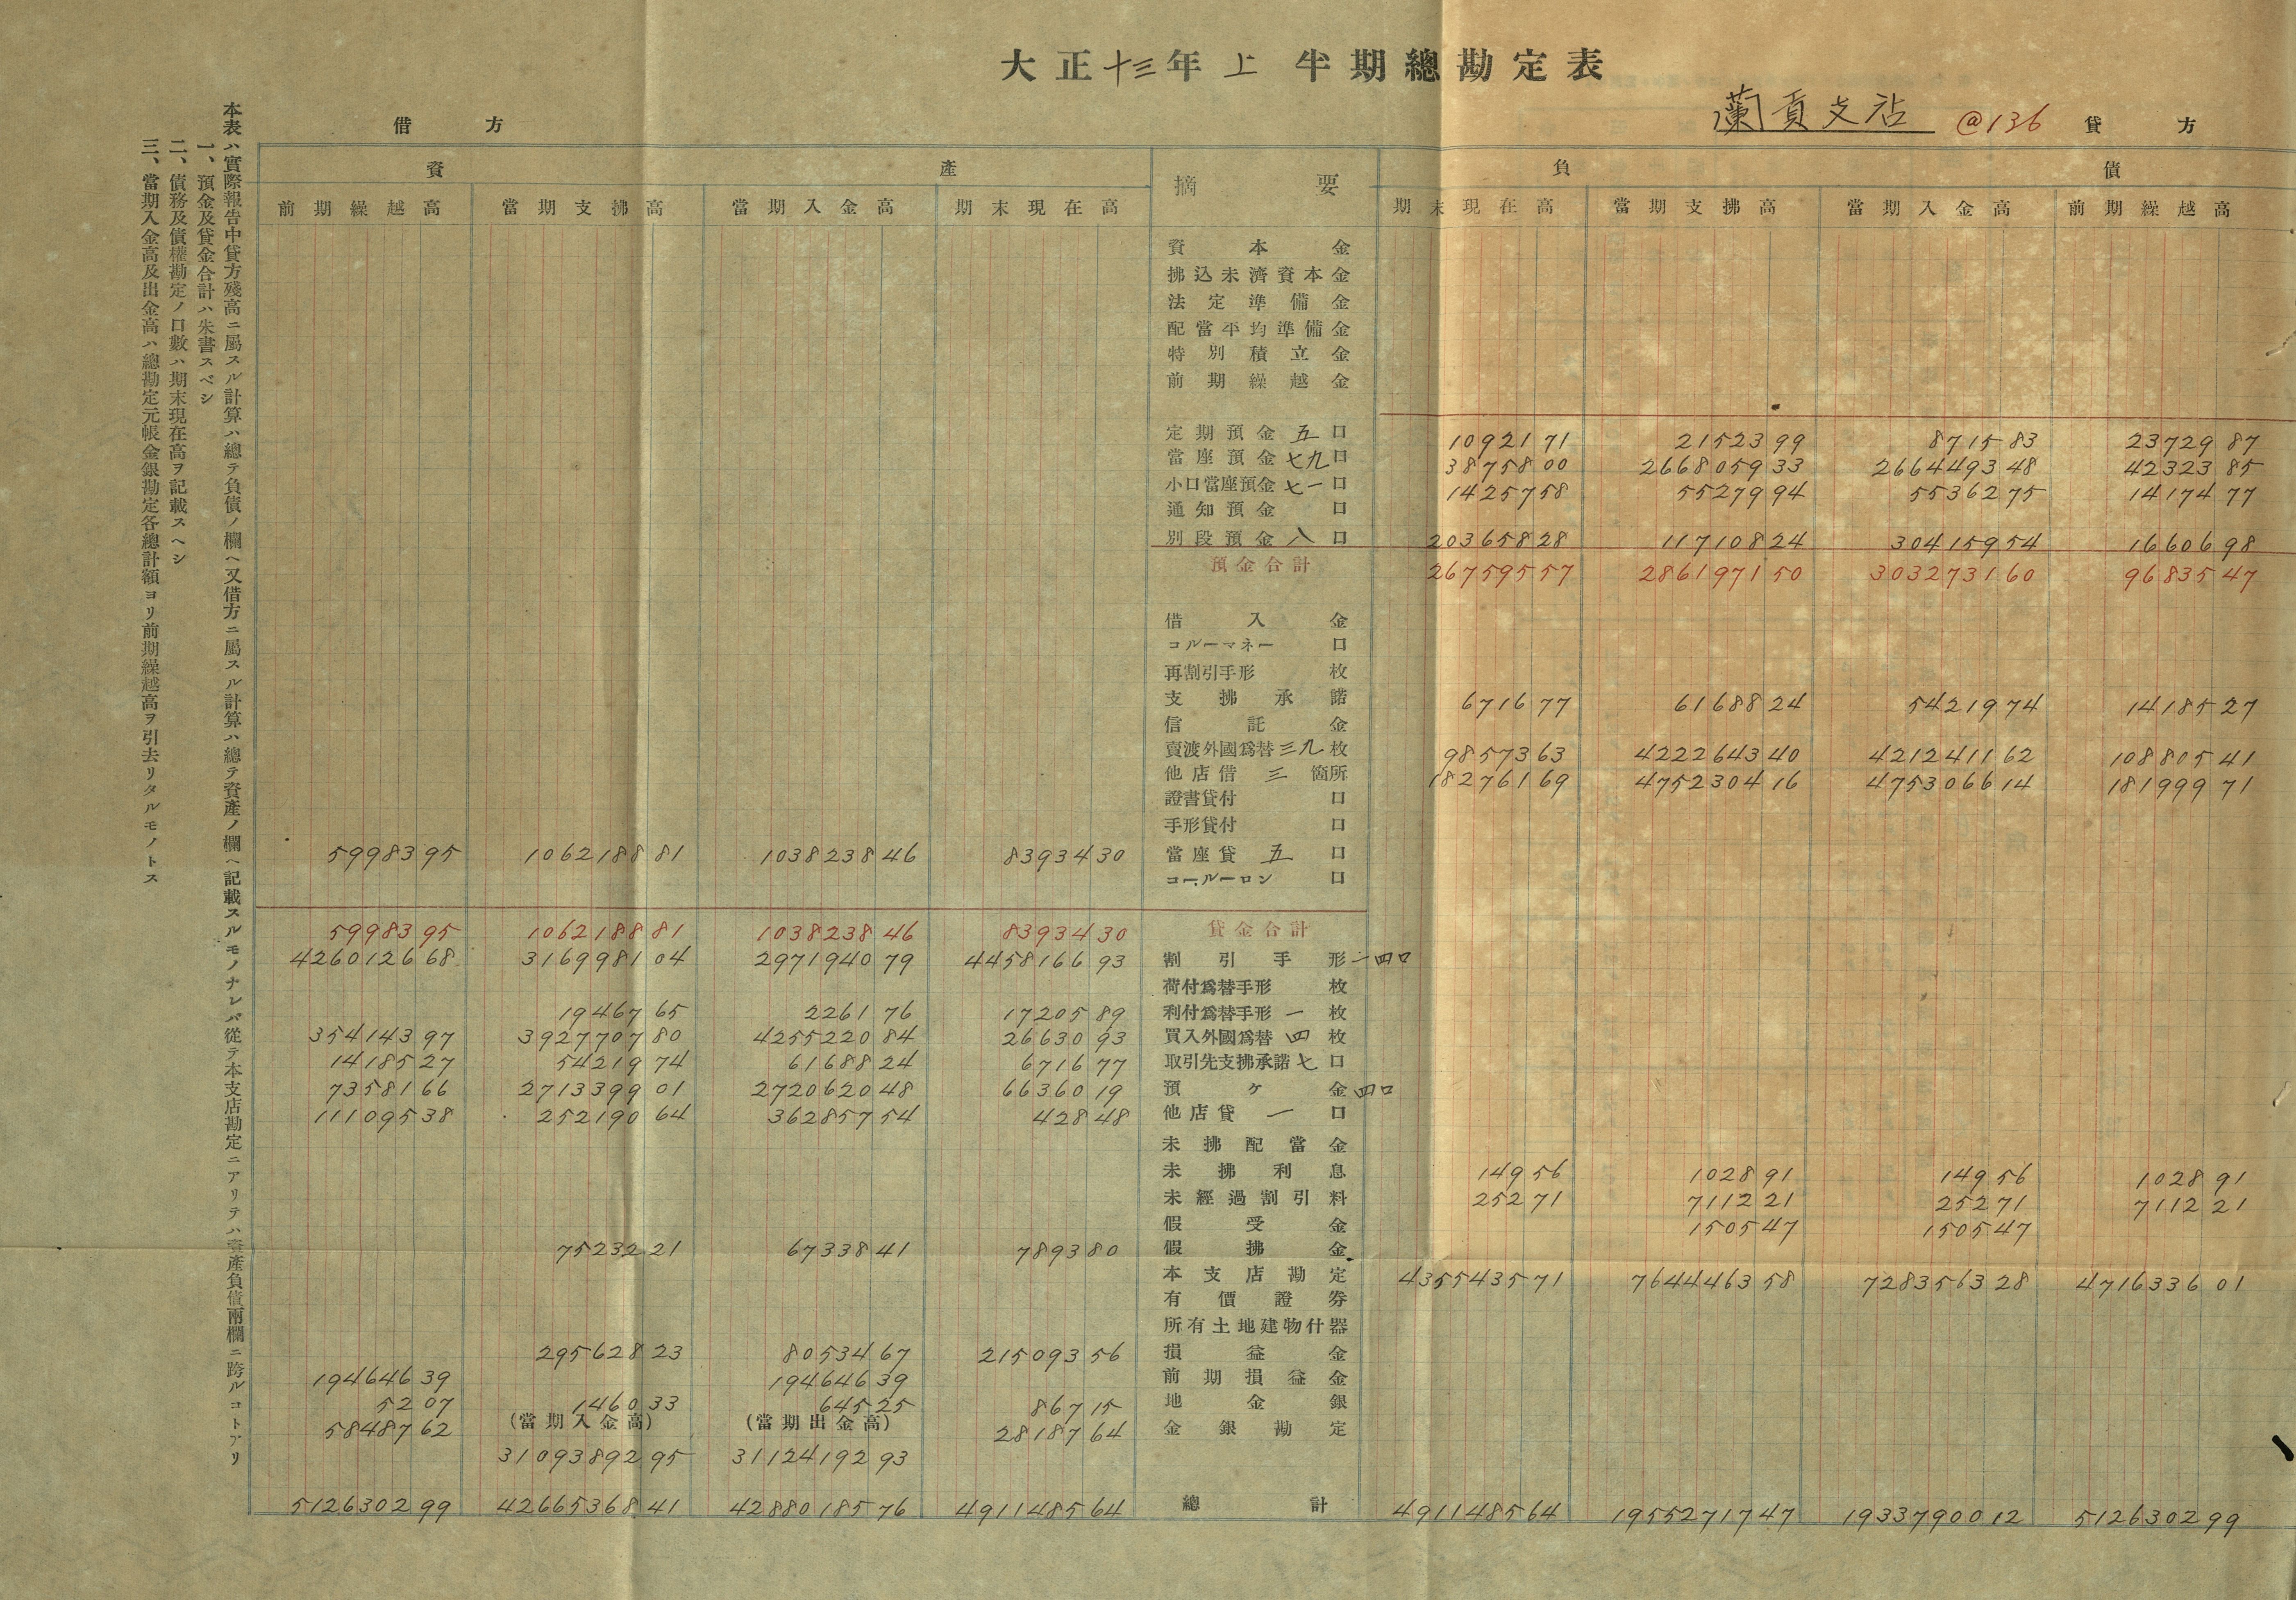 大正十三年上半期總勘定表
蘭貢支店 @136
借方 貸方
資產 摘要 負債
前期繰越高 當期支拂高 當期入金高 期末現在高 期末現在高 當期支拂高 當期入金高 前期繰越高
資本金
拂込未濟資本金
法定準備金
配當平均準備金
特別積立金
前期繰越金
定期預金 五口 10921 71 21523 99 8715 83 23729 87
當座預金 七九口 38758 00 2668059 33 2664493 48 42323 85
小口當座預金 七一口 14257 58 55279 94 55362 75 14174 77
通知預金 口
別段預金 八口 203658 28 117108 24 304159 54 16606 98
預金合計 267595 57 2861971 50 3032731 60 96835 47
借入金
コルーマネー 口
再割引手形 枚
支拂承諾 6716 77 61688 24 54219 74 14185 27
信託金
賣渡外國爲替 三九枚 98573 63 4222643 40 4212411 62 108805 41
他店借 三箇所 182761 69 4752304 16 4753066 14 181999 71
證書貸付 口
手形貸付 口
59983 95 1062188 81 1038238 46 83934 30 當座貸 五口
コールーロン 口
59983 95 1062188 81 1038238 46 83934 30 貸金合計
4260126 68 3169981 04 2971940 79 4458166 93 割引手形 一四口
荷付爲替手形 枚
19467 65 2261 76 17205 89 利付爲替手形 一枚
354143 97 3927707 80 4255220 84 26630 93 買入外國爲替 四枚
14185 27 54219 74 61688 24 6716 77 取引先支拂承諾 七口
73581 66 2713399 01 2720620 48 66360 19 預ケ金 四口
111095 38 252190 64 362857 54 428 48 他店貸 一口
未拂配當金
未拂利息 149 56 1028 91 149 56 1028 91
未經過割引料 252 71 7112 21 252 71 7112 21
假受金 1505 47 1505 47
75232 21 67338 41 7893 80 假拂金
本支店勘定 4355435 71 7644463 58 7283563 28 4716336 01
有價證券
所有土地建物什器
295628 23 80534 67 215093 56 損益金
194646 39 194646 39 前期損益金
52 07 1460 33 645 25 867 15 地金銀
58487 62 (當期入金高) (當期出金高) 28187 64 金銀勘定
31093892 95 31124192 93
5126302 99 42665368 41 42880185 76 4911485 64 總計 4911485 64 19552717 47 19337900 12 5126302 99
本表ハ實際報告中貸方殘高ニ屬スル計算ハ總テ負債ノ欄ヘ又借方ニ屬スル計算ハ總テ資產ノ欄ヘ記載スルモノナレバ從テ本支店勘定ニアリテハ資產負債兩欄ニ跨ルコトアリ
一、預金及貸金合計ハ朱書スベシ
二、債務及債權勘定ノ口數ハ期末現在高ヲ記載スヘシ
三、當期入金高及出金高ハ總勘定元帳金銀勘定各總計額ヨリ前期繰越高ヲ引去リタルモノトス